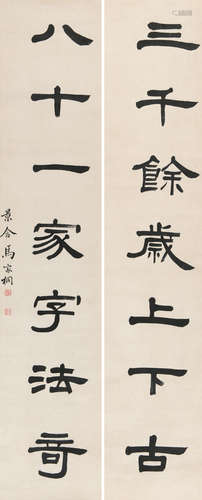 三千餘歲上下古
八十一家字法奇
景含馬家桐